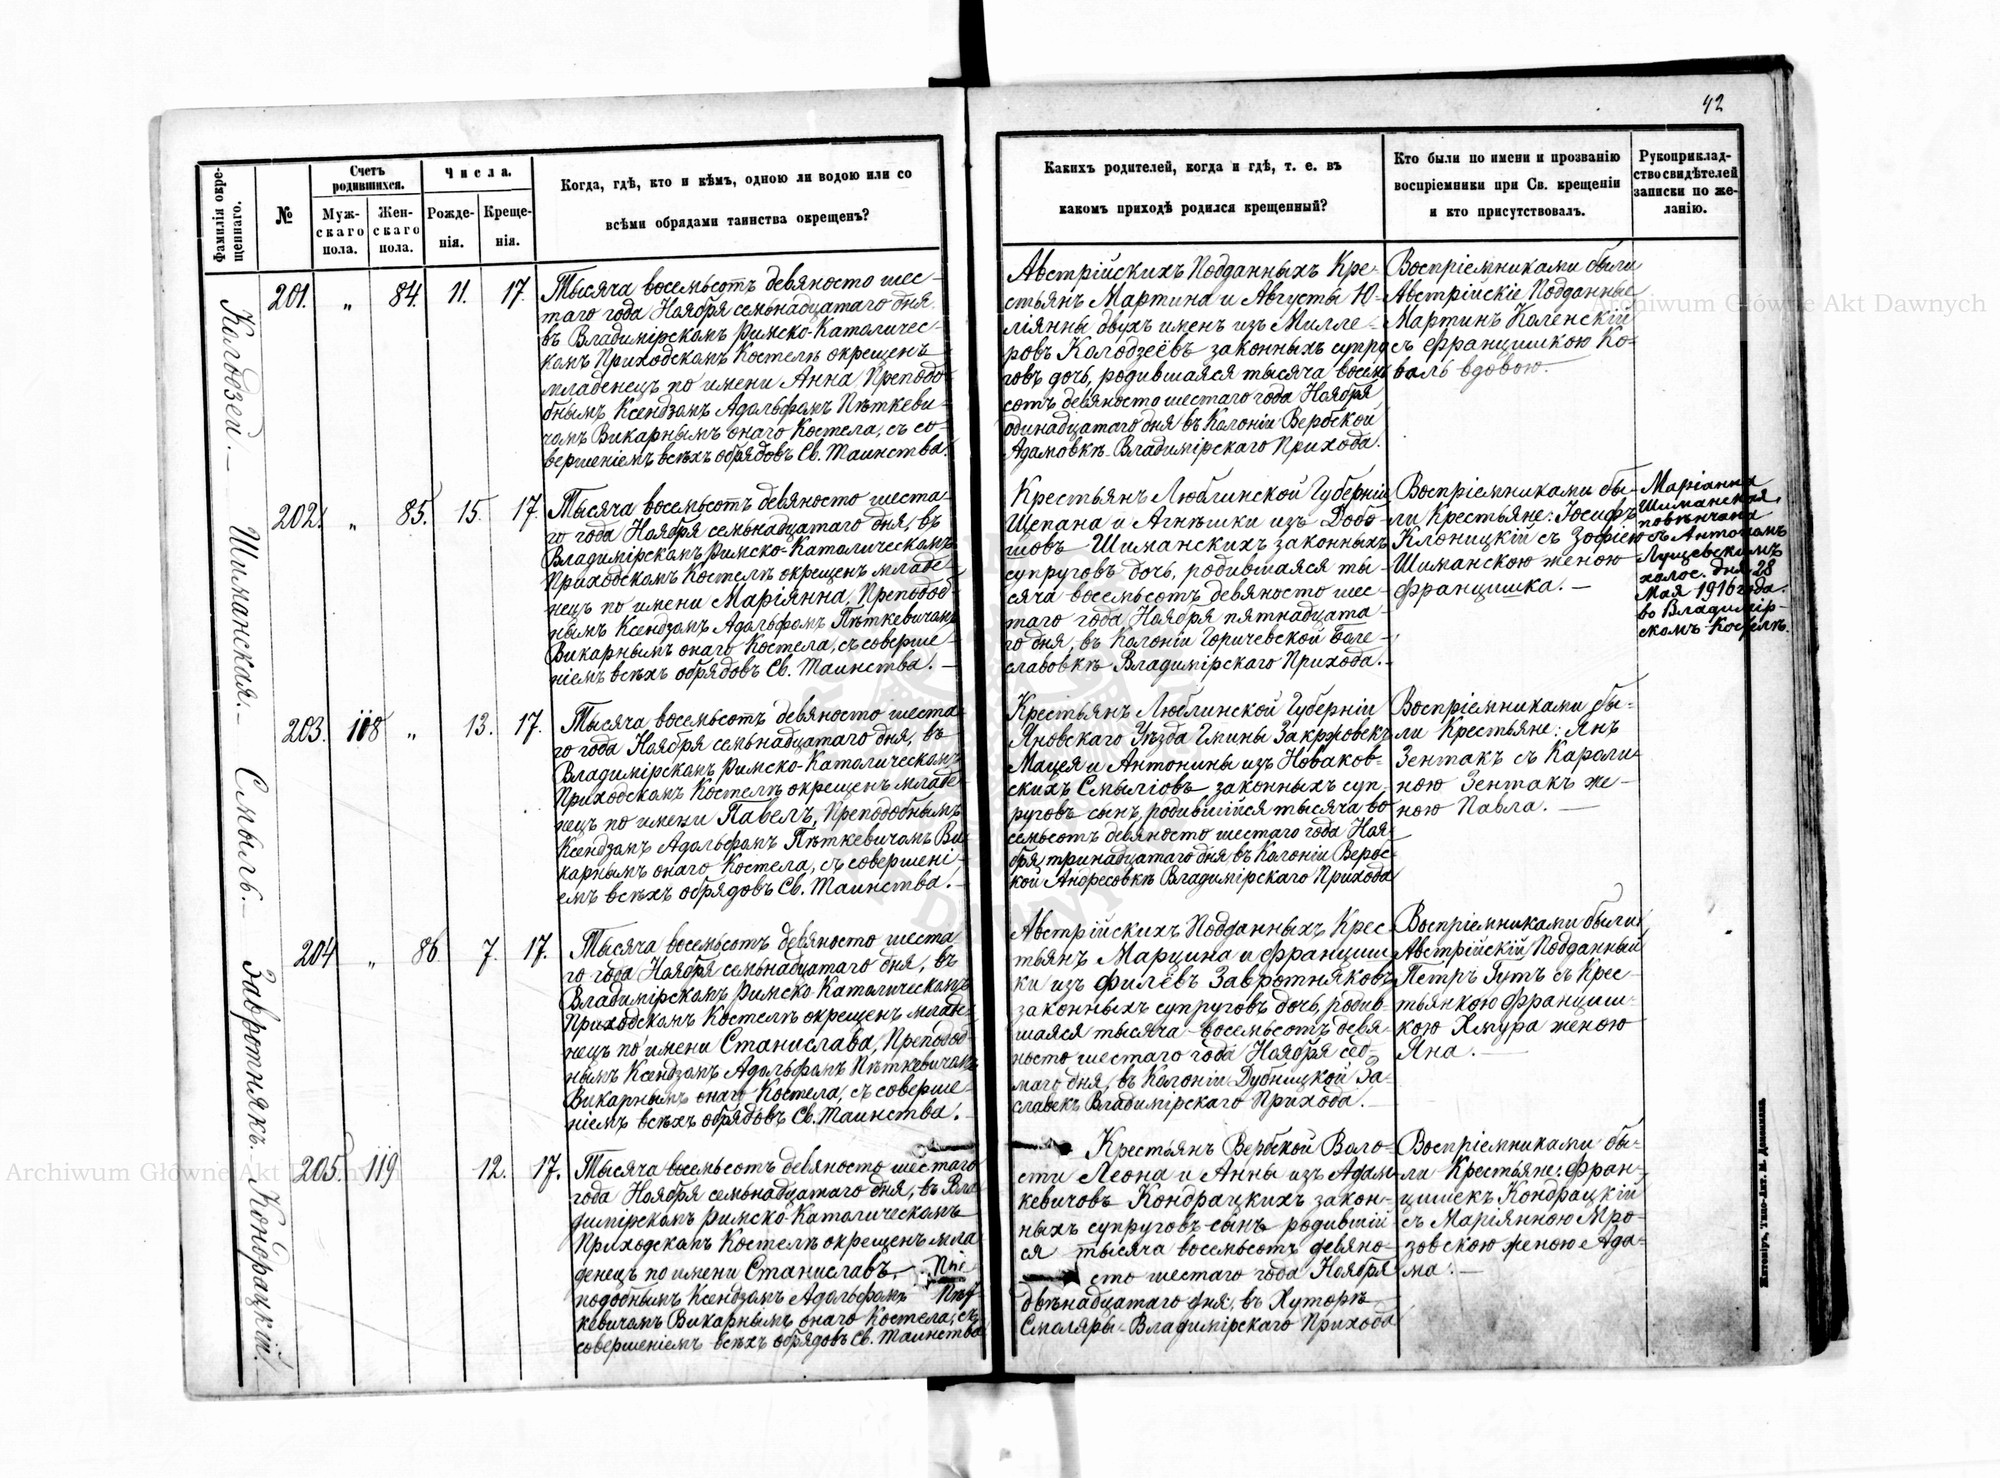 42
Фамилія окре-
щеннаго.
№
Счетъ
родившихся.
Муж-
скаго
пола.
Жен-
скаго
пола.
Числа.
Рожде-
нія.
Креще-
нія.
Когда, гдѣ, кто и кѣмъ, одною ли водою или со
всѣми обрядами таинства окрещенъ?
Какихъ родителей, когда и гдѣ, т. е. въ
какомъ приходѣ родился крещенный?
Кто были по имени и прозванію
воспріемники при Св. крещеніи
и кто присутствовалъ.
Рукоприклад-
ство свидѣтелей
записки по же-
ланію.
Колодзей.—
201. „ 84. 11. 17.
Тысяча восемьсотъ девяносто шес-
таго года Ноября семьнадцатаго дня
въ Владимірскомъ Римско-Католичес-
комъ Приходскомъ Костелѣ окрещенъ
младенецъ по имени Анна, Преподо-
бнымъ Ксендзомъ Адольфомъ Пѣткеви-
чомъ Викарнымъ онаго Костела, съ со-
вершеніемъ всѣхъ обрядовъ Св. Таинства.
Австрійскихъ Подданныхъ Кре-
стьянъ Мартина и Августы Ю-
ліянны двухъ именъ изъ Милле-
ровъ Колодзеёвъ законныхъ супру
говъ дочь, родившаяся тысяча восем
сотъ девяносто шестаго года Ноября
одинадцатаго дня въ Колоніи Вербской
Адамовкѣ Владимірскаго Прихода.
Воспріемниками были
Австрійскіе Подданные
Мартинъ Коленскій
съ Францишкою Ко-
валь вдовою.
Шиманская.—
202. „ 85. 15. 17.
Тысяча восемьсотъ девяносто шеста-
го года Ноября семьнадцатаго дня, въ
Владимірскомъ Римско-Католическомъ
Приходскомъ Костелѣ окрещенъ младе-
нецъ по имени Маріянна, Преподоб-
нымъ Ксендзомъ Адольфомъ Пѣткевичомъ
Викарнымъ онаго Костела, съ соверше-
ніемъ всѣхъ обрядовъ Св. Таинства.—
Крестьянъ Люблинской Губерніи
Щепана и Агнѣшки изъ
Шиманскихъ законныхъ
супруговъ дочь, родившаяся ты-
сяча восемьсотъ девяносто шес-
таго года Ноября пятнадцата-
го дня, въ Колоніи Горичевской Боле-
славовкѣ Владимірскаго Прихода.—
Воспріемниками бы-
ли Крестьяне: Іосифъ
Клоницкій съ Зофіею
Шиманскою женою
Францишка.—
Маріанна
Шиманская,
повѣнчана
съ Антономъ
Лущевскимъ
холос. дня 28
Мая 1916 года.
во Владимір-
скомъ Костелѣ.
Смыль.—
203. 118 „ 13. 17.
Тысяча восемьсотъ девяносто шеста-
го года Ноября семьнадцатаго дня, въ
Владимірскомъ Римско-Католическомъ
Приходскомъ Костелѣ окрещенъ младе-
нецъ по имени Павелъ, Преподобнымъ
Ксендзомъ Адольфомъ Пѣткевичомъ Ви
карнымъ онаго Костела, съ совершені-
емъ всѣхъ обрядовъ Св. Таинства.—
Крестьянъ Люблинской Губерніи
Яновскаго Уѣзда Гмины Закржовекъ
Мацея и Антонины изъ Новаков-
скихъ Смыліовъ законныхъ суп-
руговъ сынъ, родившійся тысяча во
семьсотъ девяносто шестаго года Ноя-
бря тринадцатаго дня въ Колоніи Вербс-
кой Андресовкѣ Владимірскаго Прихода
Воспріемниками бы-
ли Крестьяне: Янъ
Зентакъ съ Кароли-
ною Зентакъ же-
ною Павла.—
Завротнякъ.
204 „ 86 7. 17.
Тысяча восемьсотъ девяносто шеста-
го года Ноября семьнадцатаго дня, въ
Владимірскомъ Римско Католическомъ
Приходскомъ Костелѣ окрещенъ младе-
нецъ по имени Станислава, Преподоб-
нымъ Ксендзомъ Адольфомъ Пѣткевичомъ
Викарнымъ онаго Костела, съ соверше-
ніемъ всѣхъ обрядовъ Св. Таинства.—
Австрійскихъ Подданныхъ Крес-
тьянъ Марцина и Францишки
ки изъ Филёвъ Завротняковъ
законныхъ супруговъ дочь, родив-
шаяся тысяча восемьсотъ девя-
носто шестаго года Ноября сед-
маго дня, въ Колоніи Дубницкой За-
славекъ Владимірскаго Прихода.
Воспріемниками были
Австрійскій Подданный
Петръ Гутъ съ Крес-
тьянкою Францишк-
кою Хмура женою
Яна.—
Кондрацкій.
205. 119 12. 17.
Тысяча восемьсотъ девяносто шестаго
года Ноября семьнадцатаго дня, въ Вла
димірскомъ Римско-Католическомъ
Приходскомъ Костелѣ окрещенъ мла
денецъ по имени Станиславъ,
подобнымъ Ксендзомъ Адольфомъ Пѣт
кевичомъ Викарнымъ онаго Костела, съ
совершеніемъ всѣхъ обрядовъ Св. Таинства
Крестьянъ Вербской Воло-
сти Леона и Анны изъ Адам-
кевичовъ Кондрацкихъ закон-
ныхъ супруговъ сынъ родившій
ся тысяча восемьсотъ девяно-
сто шестаго года Ноября
двѣнадцатаго дня, въ Хуторѣ
Смоляры Владимірскаго Прихода
Воспріемниками бы-
ли Крестьяне: Фран-
цишекъ Кондрацкій
съ Маріянною Мро-
зовскою женою Ада-
ма.—
Archiwum Główne Akt Dawnych
Archiwum Główne Akt Dawnych